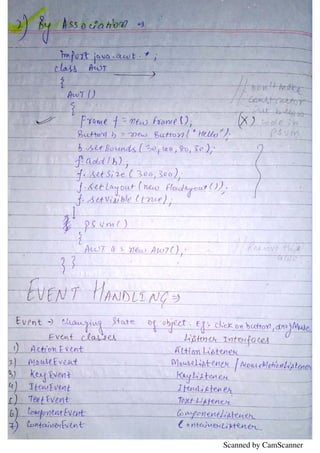 2) By Association →
import java.awt.*;
class AWT
{
AWT()
{
Frame f = new Frame();
Button b = new Button("Hello");
b.setBounds(30,100,80,30);
f.add(b);
f.setSize(300,300);
f.setLayout(new FlowLayout());
f.setVisible(true);
}
psvm()
{
AWT a = new AWT();
}}
// Don't make
constructor
(X) code in
psvm
EVENT HANDLING ⇒
Event → changing state of object. Eg: click on button, drag Mouse
Event classes Listner Interfaces
1) ActionEvent ActionListener
2) MouseEvent MouseListener / MouseMotionListener
3) KeyEvent KeyListener
4) ItemEvent ItemListener
5) TextEvent TextListener
6) ComponentEvent ComponentListener
7) ContainerEvent ContainerListener
Scanned by CamScanner